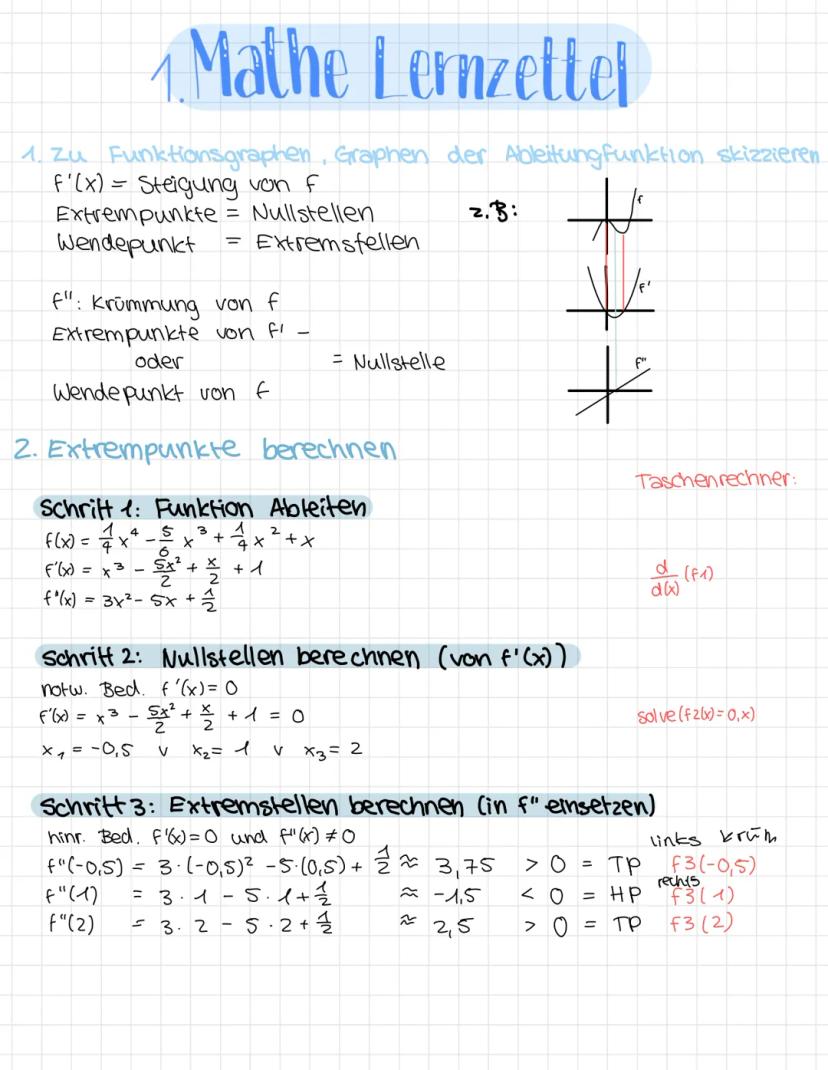 1. Mathe Lernzettel
1. Zu Funktionsgraphen, Graphen der Ableitungfunktion skizzieren
f'(x) = Steigung von f
Extrempunkte = Nullstellen
Wendepunkt = Extremstellen
z.B:
f
f'
f"
f": Krümmung von f
Extrempunkte von f' -
oder
= Nullstelle
Wendepunkt von f
2. Extrempunkte berechnen
Taschenrechner:
Schritt 1: Funktion Ableiten
f(x) = 1/4 x⁴ - 5/6 x³ + 1/4 x² + x
f'(x) = x³ - 5x²/2 + x/2 + 1
d/d(x) (f1)
f"(x) = 3x² - 5x + 1/2
Schritt 2: Nullstellen berechnen (von f'(x))
notw. Bed. f'(x) = 0
f'(x) = x³ - 5x²/2 + x/2 + 1 = 0
solve(f2(x)=0,x)
x₁ = -0,5 v x₂ = 1 v x₃ = 2
Schritt 3: Extremstellen berechnen (in f" einsetzen)
hinr. Bed. f'(x) = 0 und f"(x) ≠ 0
links krüm
f"(-0,5) = 3·(-0,5)² - 5·(0,5) + 1/2 ≈ 3,75 > 0 = TP f3(-0,5)
rechts
f"(1) = 3·1 - 5·1 + 1/2 ≈ -1,5 < 0 = HP f3(1)
f"(2) = 3·2 - 5·2 + 1/2 ≈ 2,5 > 0 = TP f3(2)